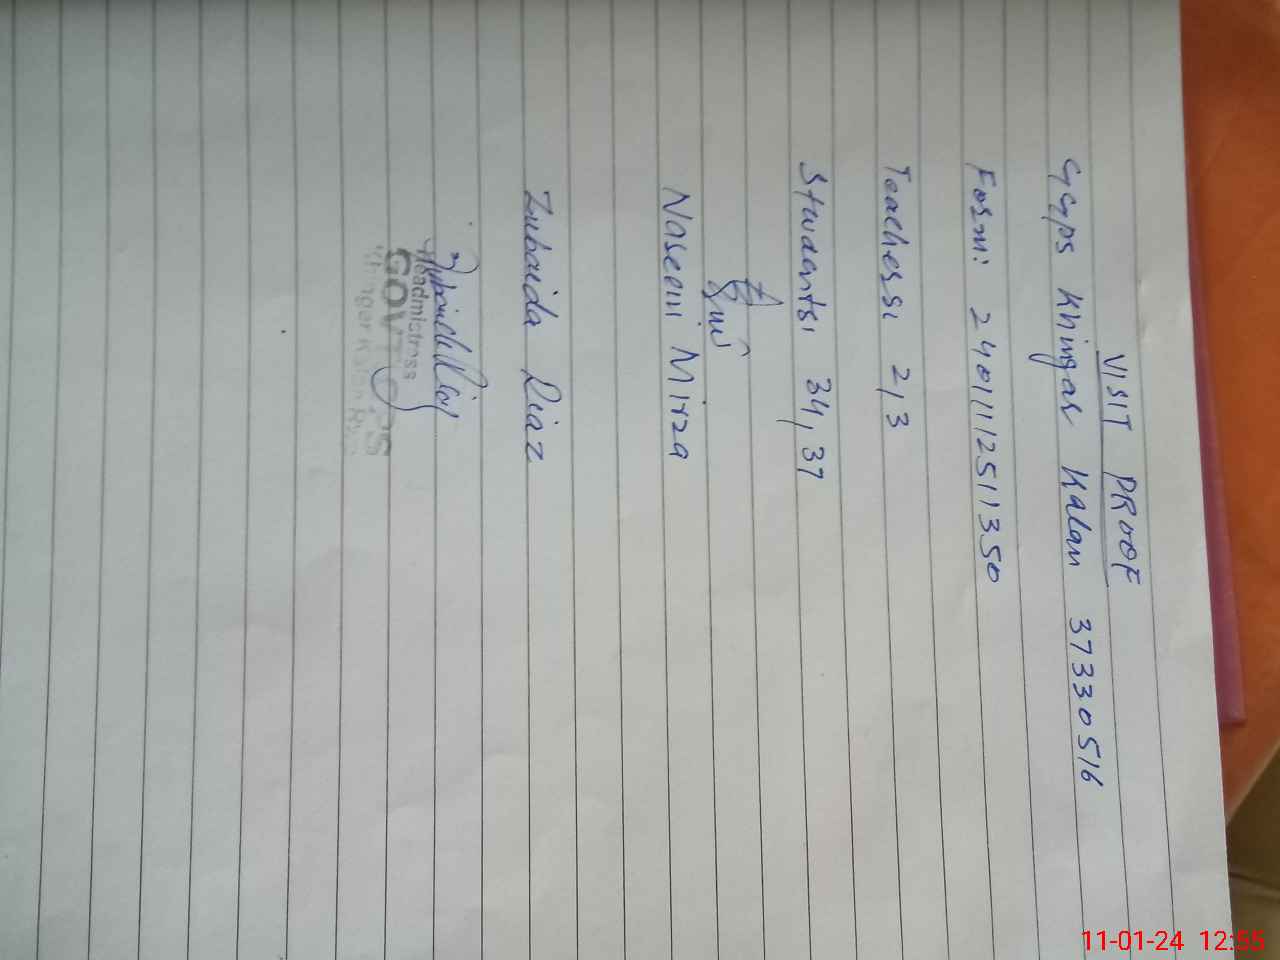 VISIT PROOF
GGPS Khingar Kalan 37330516
Form: 240111251350
Teachers: 2/3
Students: 34, 37
Naseem Mirza
Zubaida Riaz
Headmistress
GOVT G.P.S
Khinger Kalan
11-01-24 12:55